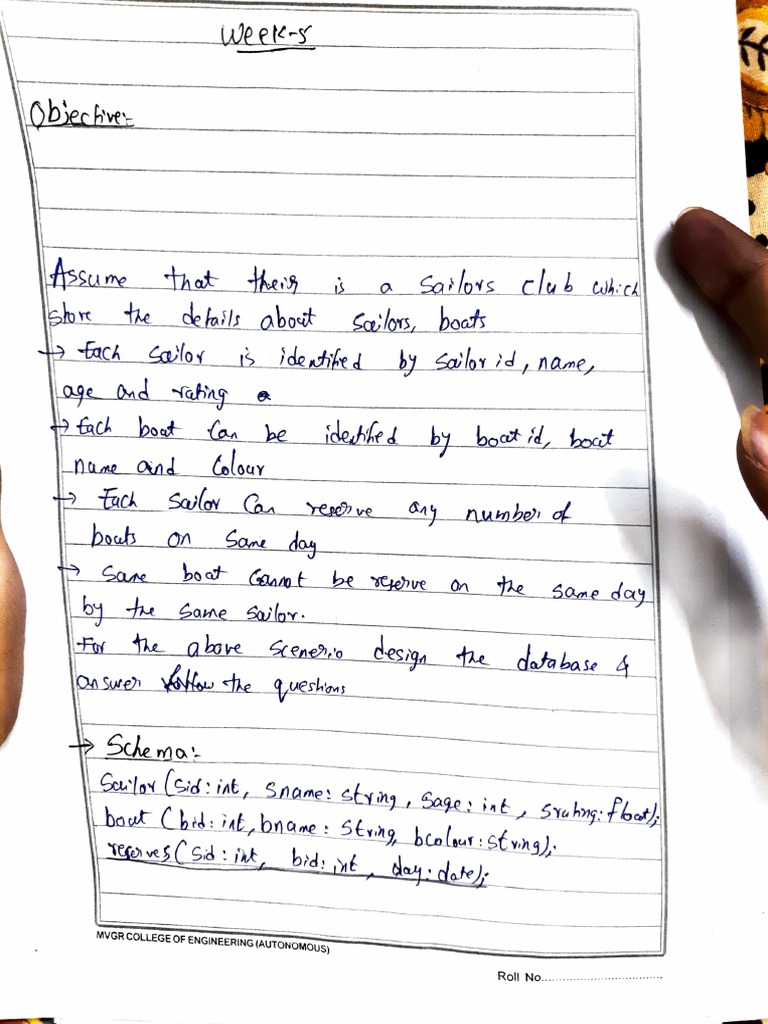 Week-5
Objective:-
Assume that their is a sailors club which
store the details about sailors, boats
→ Each sailor is identified by sailor id, name,
age and rating
→ Each boat can be identified by boat id, boat
name and Colour
→ Each sailor Can reserve any number of
boats on same day
→ Same boat Cannot be reserve on the same day
by the same sailor.
For the above scenerio design the database &
answer follow the questions
→ Schema:-
Sailor (sid: int, sname: string, sage: int, srating: float);
boat (bid: int, bname: string, bcolour: string);
reserves (sid: int, bid: int, day: date);
MVGR COLLEGE OF ENGINEERING (AUTONOMOUS)
Roll No....................................